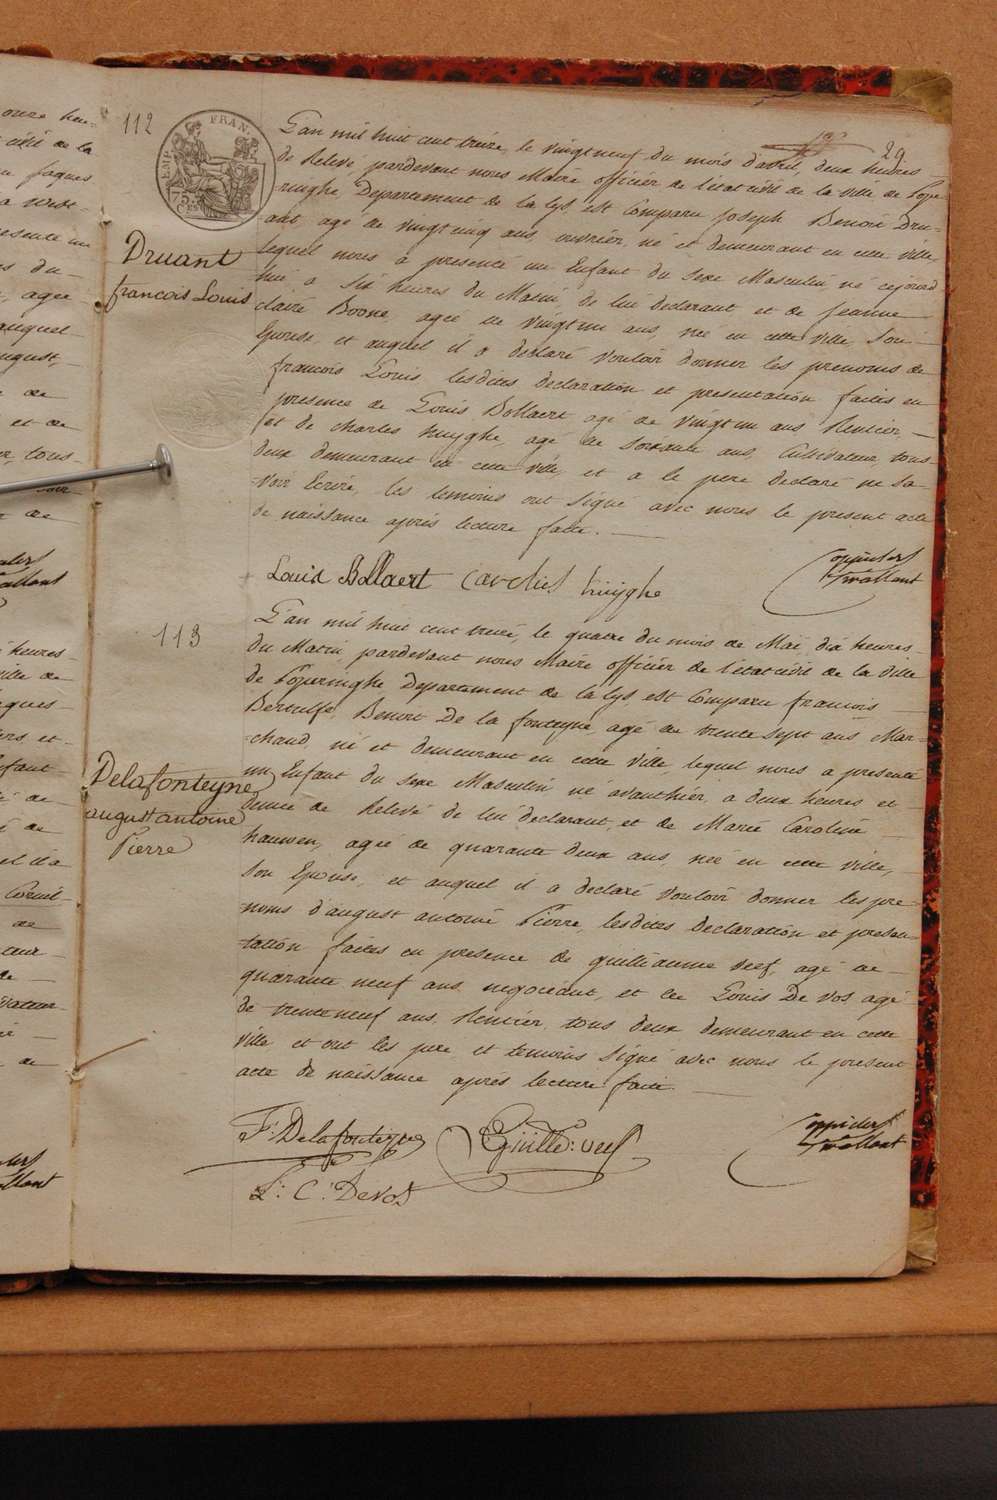 112
29
L'an mil huit cent treize, le vingtneuf du mois d'avril, deux heures
de Relevé pardevant nous Maire officier de l'état civil de la ville de Pope-
ringhe, Departement de la Lys, est Comparu Joseph Benoit Dru-
ant, agé de vingtcinq ans, ouvrier, né et demeurant en cette ville
lequel nous a presenté un Enfant du sexe Masculin né cejourd
hui a Six heures du Matin, de lui declarant et de Jeanne
claire Boone, agée de vingtun ans, née en cette ville, Son
Epouse, et auquel il a declaré vouloir donner les prenoms de
francois Louis, lesdites declaration et presentation faites en
presence de Louis Bollaert agé de vingtun ans Rentier,
et de charles huyghe, agé de soixante ans, Cultivateur, tous
deux demeurant en cette ville, et a le pere declaré ne sa-
voir Ecrire, les temoins ont Signé avec nous le present acte
de naissance après lecture faite.
Druant
francois Louis
Louis Bollaert Carolus huyghe
113
L'an mil huit cent treize, le quatre du mois de Mai, dix heures
du Matin, pardevant nous Maire officier de l'état civil de la ville
de Poperinghe Departement de la Lys, est Comparu francois
Bertulfe, Benoit De la fonteyne, agé de trente sept ans Mar-
chand, né et demeurant en cette ville, lequel nous a presenté
un Enfant du sexe Masculin né avanthier, a deux heures et
demie de Relevé de lui declarant, et de Marie Caroline
hauwen, agée de quarante deux ans, née en cette ville,
Son Epouse, et auquel il a declaré vouloir donner les pre-
noms d'august antoine Pierre, lesdites declaration et presen-
tation faites en presence de guilleaume veef, agé de
quarante neuf ans, negociant, et de Louis De vos agé
de trenteneuf ans, Rentier, tous deux demeurant en cette
ville et ont les pere et temoins Signé avec nous le present
acte de naissance après lecture faite
Delafonteyne
august antoine
Pierre
F: Delafonteyne
Guille: veef
L: C: Devos